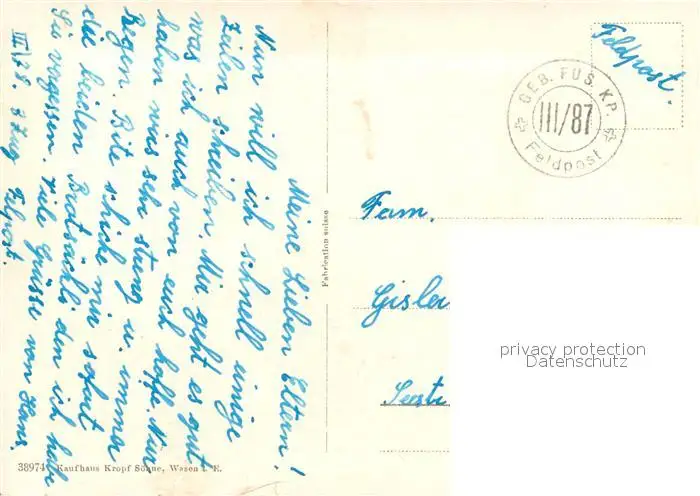 Meine Lieben Eltern!
Nun will ich schnell einige
Zeilen schreiben. Mir geht es gut
was ich auch von euch hoffe. Nur
haben wirs sehr stung u. imma
Regen. Bite schicke mir sofort
die beiden Brotsächli den ich habe
Sie vergessen. Viele Grüsse von Hans.
III/78. 3 Zug Felpost.
Fabrication suisse
38974 Kaufhaus Kropf Söhne, Wasen i. E.
Feldpost.
GEB. FÜS. KP.
III/87
Feldpost
Fam.
Gisler
privacy protection
Datenschutz